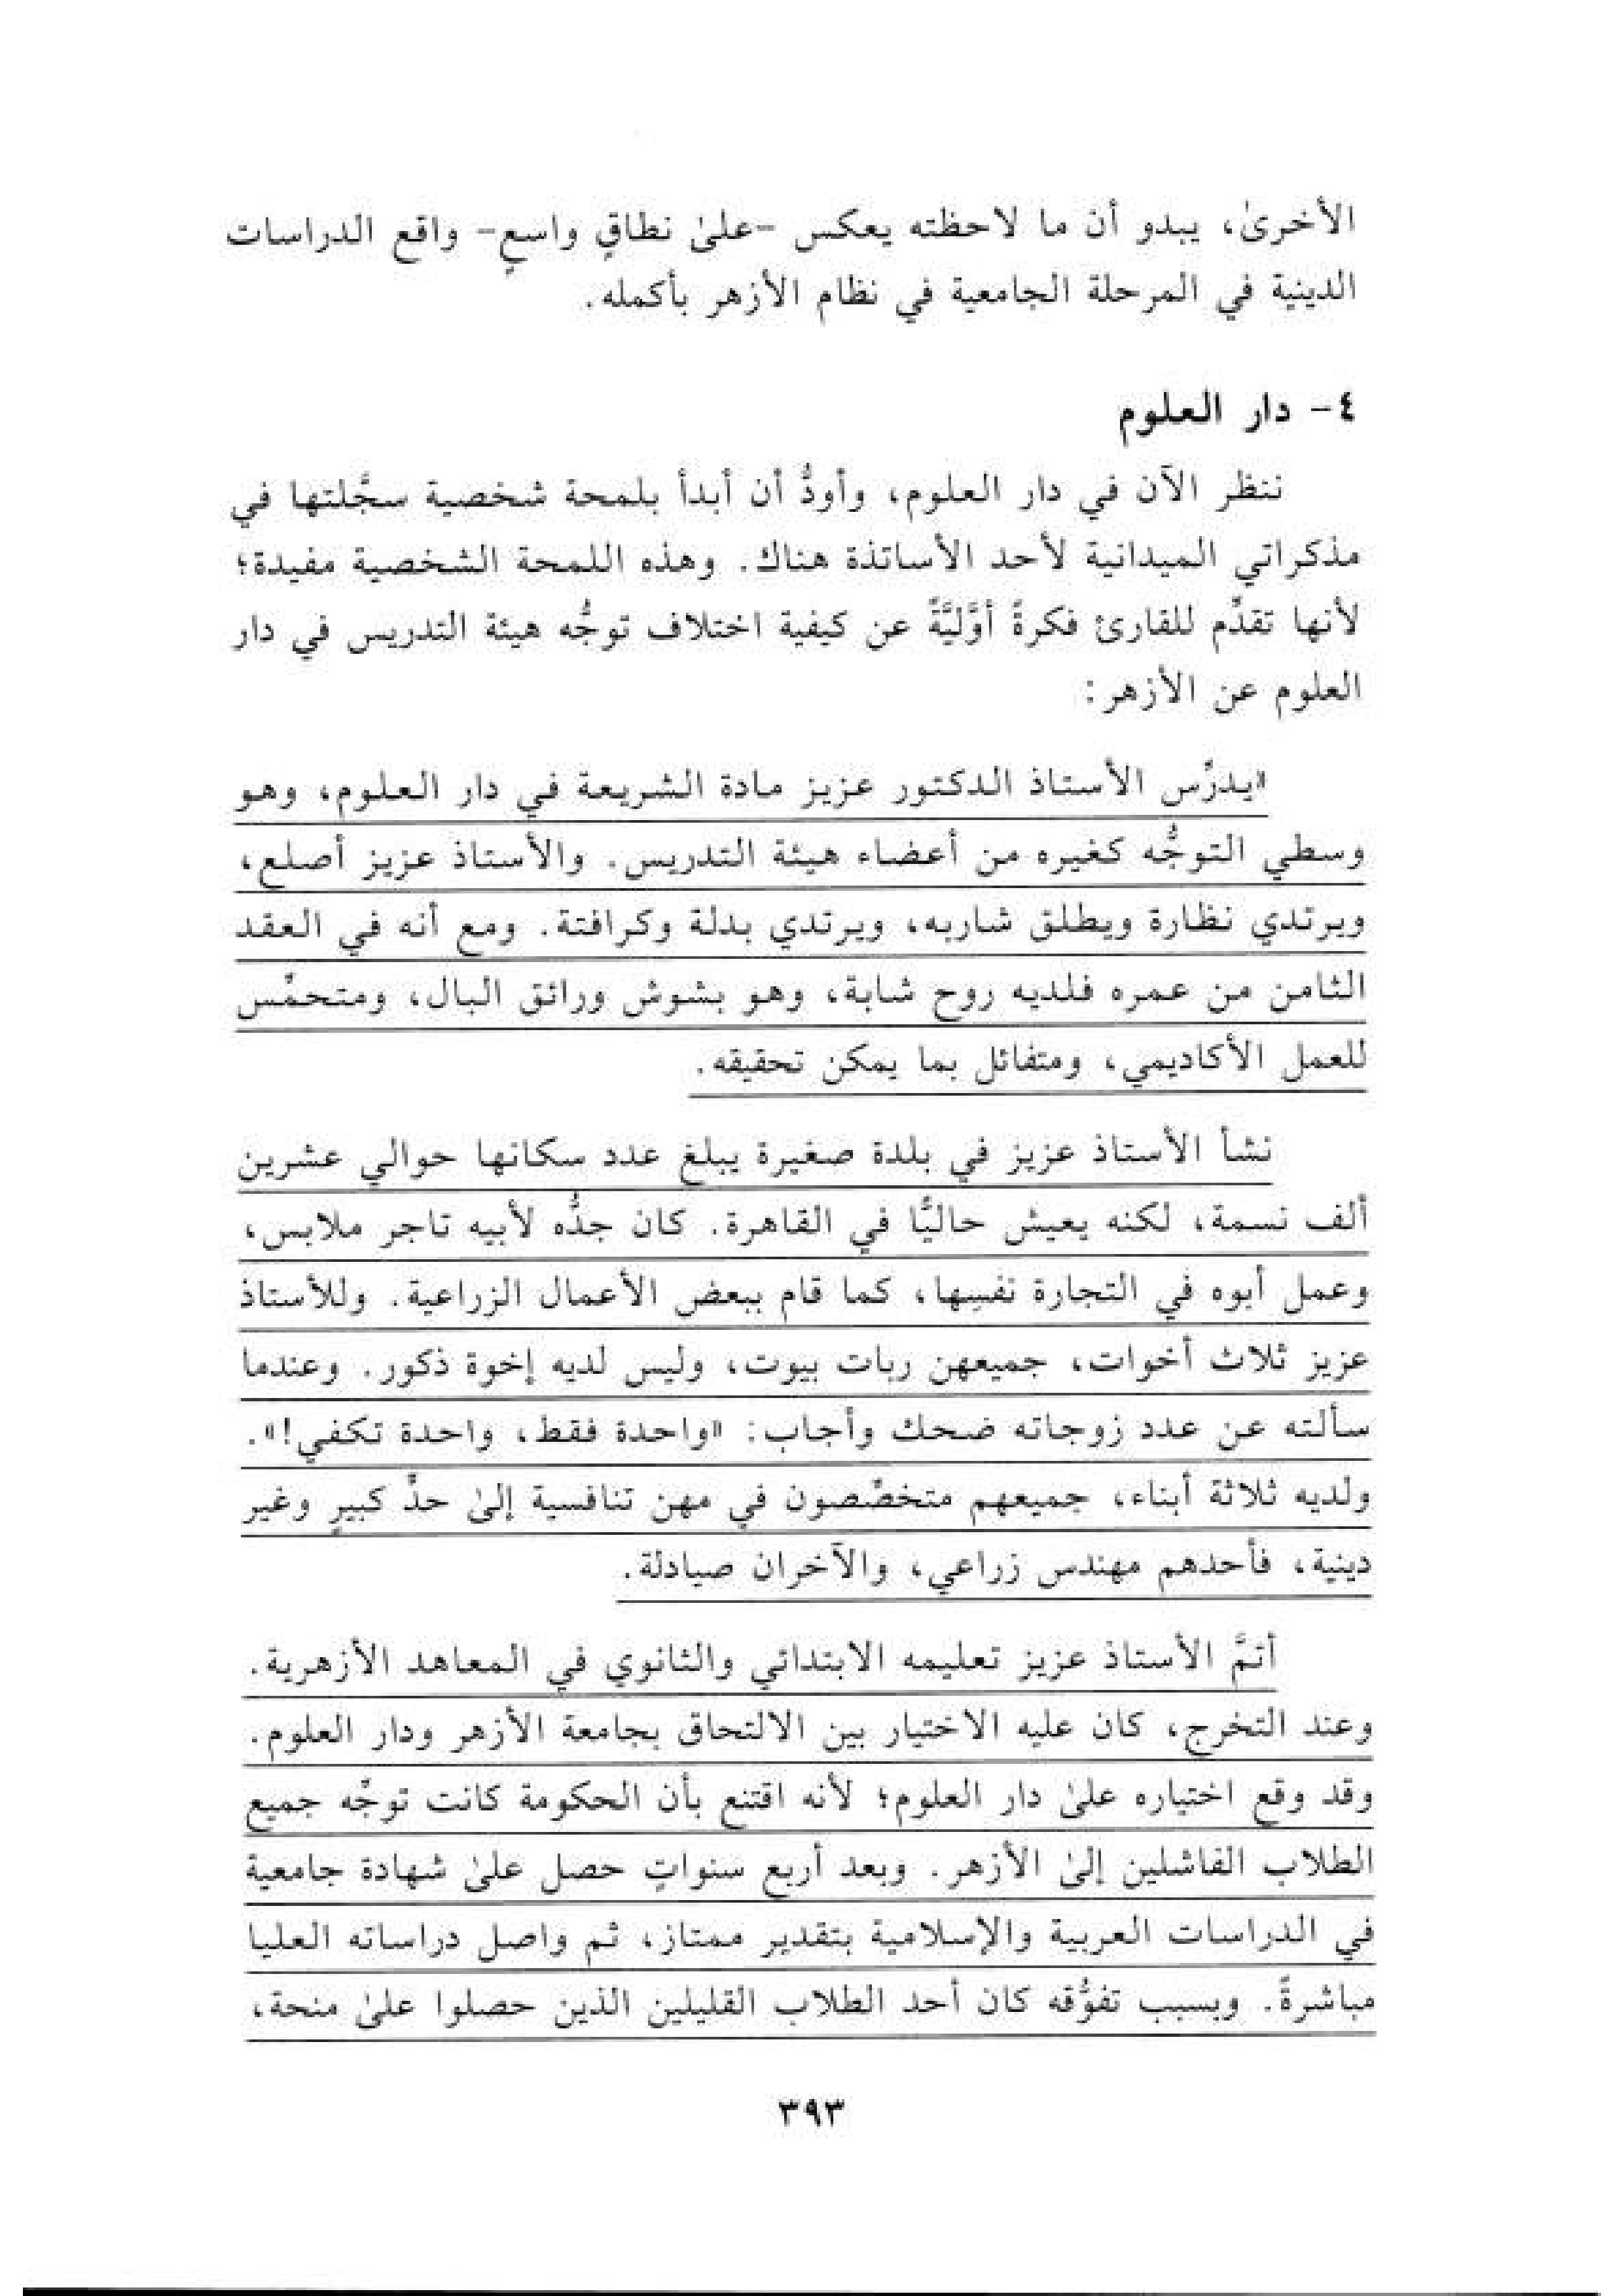 الأخرىٰ، يبدو أن ما لاحظته يعكس -علىٰ نطاقٍ واسعٍ- واقع الدراسات
الدينية في المرحلة الجامعية في نظام الأزهر بأكمله.
٤- دار العلوم
ننظر الآن في دار العلوم، وأودُّ أن أبدأ بلمحة شخصية سجَّلتها في
مذكراتي الميدانية لأحد الأساتذة هناك. وهذه اللمحة الشخصية مفيدة؛
لأنها تقدِّم للقارئ فكرةً أوَّليَّةً عن كيفية اختلاف توجُّه هيئة التدريس في دار
العلوم عن الأزهر:
«يدرِّس الأستاذ الدكتور عزيز مادة الشريعة في دار العلوم، وهو
وسطي التوجُّه كغيره من أعضاء هيئة التدريس. والأستاذ عزيز أصلع،
ويرتدي نظارة ويطلق شاربه، ويرتدي بدلة وكرافتة. ومع أنه في العقد
الثامن من عمره فلديه روح شابة، وهو بشوش ورائق البال، ومتحمِّس
للعمل الأكاديمي، ومتفائل بما يمكن تحقيقه.
نشأ الأستاذ عزيز في بلدة صغيرة يبلغ عدد سكانها حوالي عشرين
ألف نسمة، لكنه يعيش حاليًّا في القاهرة. كان جدُّه لأبيه تاجر ملابس،
وعمل أبوه في التجارة نفسِها، كما قام ببعض الأعمال الزراعية. وللأستاذ
عزيز ثلاث أخوات، جميعهن ربات بيوت، وليس لديه إخوة ذكور. وعندما
سألته عن عدد زوجاته ضحك وأجاب: «واحدة فقط، واحدة تكفي!».
ولديه ثلاثة أبناء، جميعهم متخصِّصون في مهن تنافسية إلىٰ حدٍّ كبيرٍ وغير
دينية، فأحدهم مهندس زراعي، والآخران صيادلة.
أتمَّ الأستاذ عزيز تعليمه الابتدائي والثانوي في المعاهد الأزهرية.
وعند التخرج، كان عليه الاختيار بين الالتحاق بجامعة الأزهر ودار العلوم.
وقد وقع اختياره علىٰ دار العلوم؛ لأنه اقتنع بأن الحكومة كانت توجِّه جميع
الطلاب الفاشلين إلىٰ الأزهر. وبعد أربع سنواتٍ حصل علىٰ شهادة جامعية
في الدراسات العربية والإسلامية بتقدير ممتاز، ثم واصل دراساته العليا
مباشرةً. وبسبب تفوُّقه كان أحد الطلاب القليلين الذين حصلوا علىٰ منحة،
٣٩٣